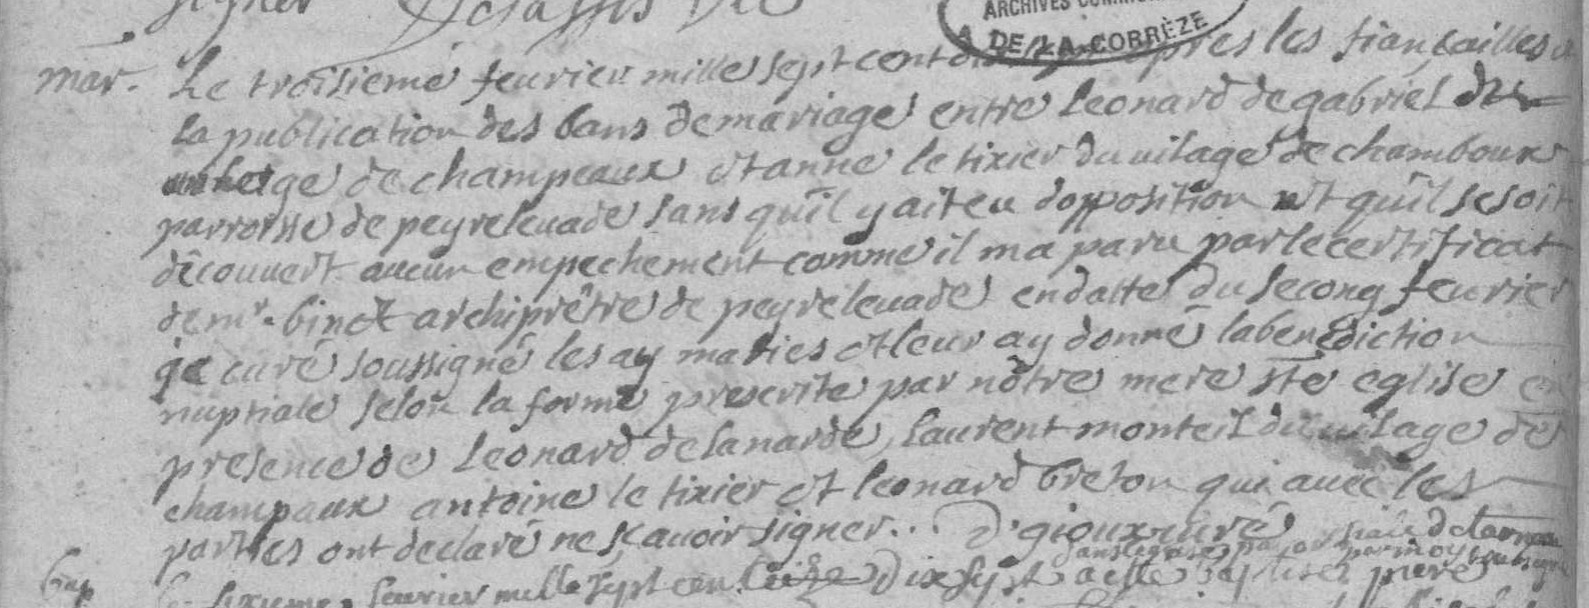 signer
ARCHIVES
DE LA CORRÈZE
mar. Le troisieme feurier mille sept cent apres les fiançailles
la publication des bans de mariage entre Leonard de gabriel
de champeaux et anne le tixier du uilage de chamboux
parroisse de peyreleuade sans qu'il y ait eu dopposition et qu'il se soit
découuert aucun empechement comme il ma paru par le certificat
de mr. binet archiprêtre de peyreleuade en datte du second feurier
je curé soussigné les ay maries et leur ay donné la benediction
nuptiale selon la forme prescrite par nôtre mere ste eglise en
presence de Leonard delanarde, laurent monteil du uilage de
champaux antoine le tixier et leonard breton qui auec les
parties ont declaré ne sçauoir signer... D'gioux curé
bap sixieme feurier mille sept cent dix sept a esté baptisé